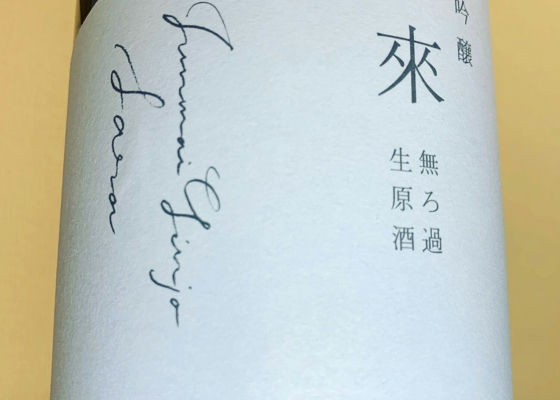 吟醸
來
無ろ過
生原酒
Junmai Ginjo